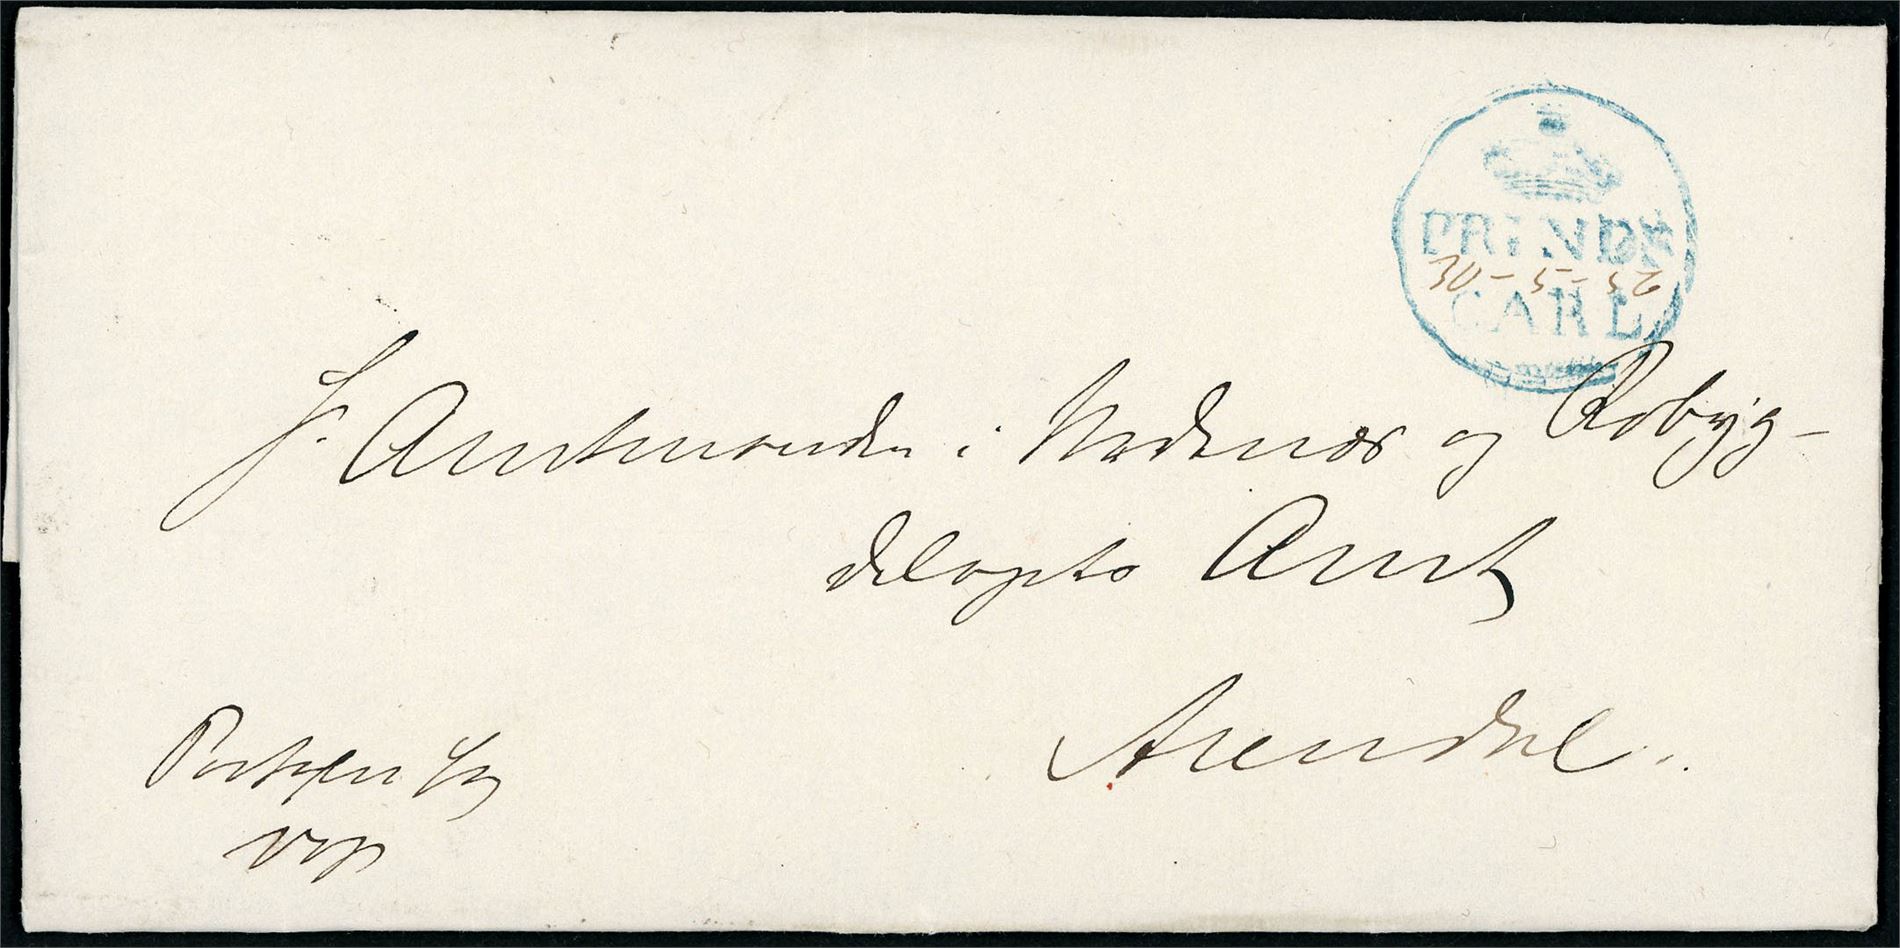 PRINDS
30-5-56
CARL
H. Amtmanden i Nedenæs og Robyg-
delagets Amt
Arendal.